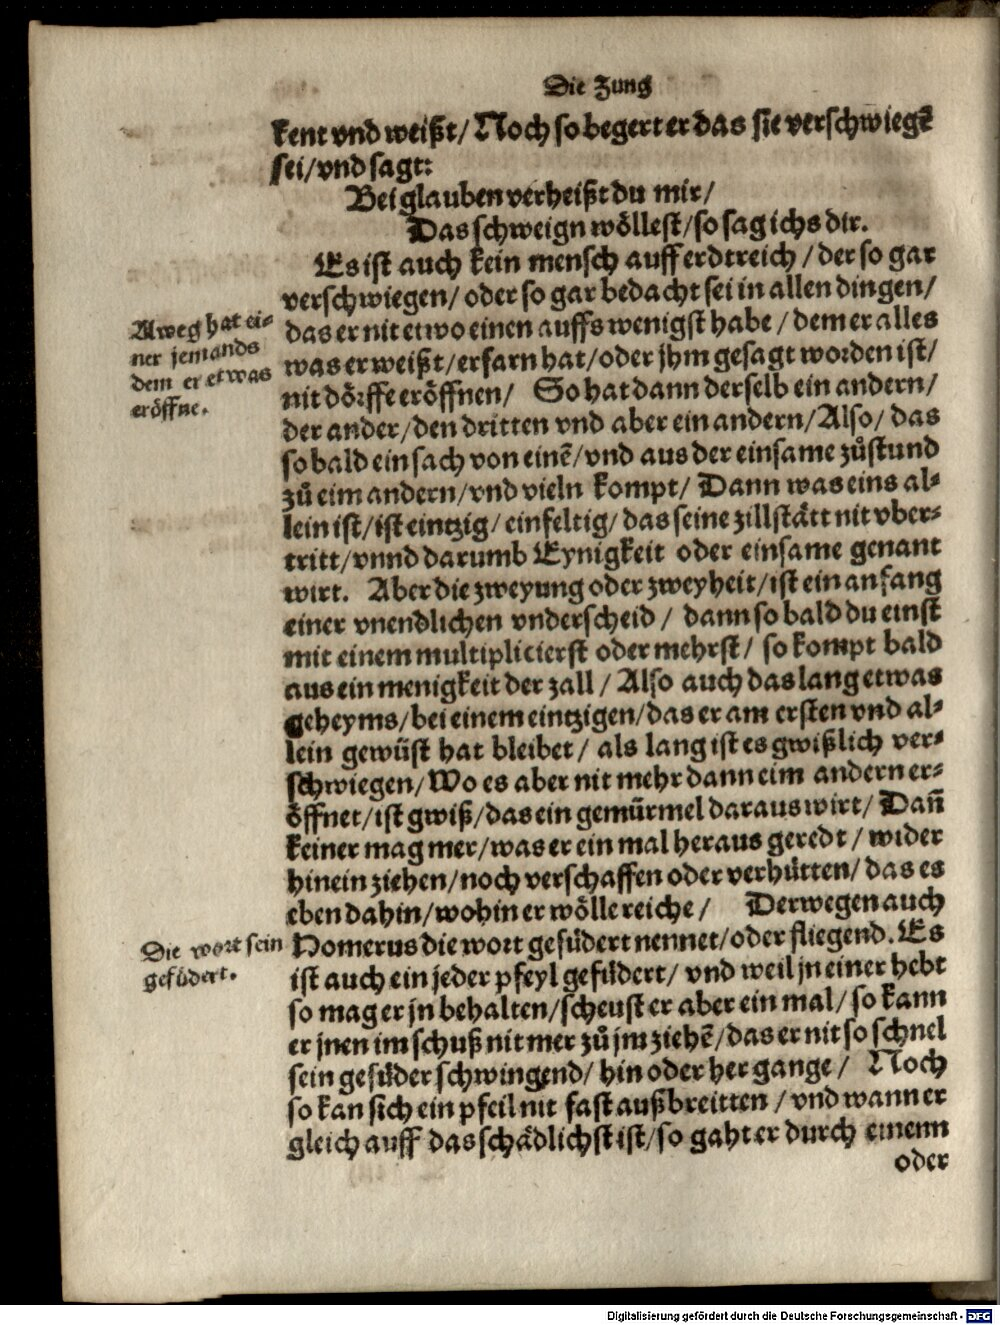 Die Zung
kent vnd weißt/ Noch so begert er das sie verschwiegẽ
sei/ vnd sagt:
Bei glauben verheißt du mir/
Das schweign wöllest/ so sag ichs dir.
Es ist auch kein mensch auff erdtreich / der so gar
verschwiegen/ oder so gar bedacht sei in allen dingen/
das er nit etwo einen auffs wenigst habe / dem er alles
was er weißt/ erfarn hat/ oder jhm gesagt worden ist/
nit dörffe eröffnen/ So hat dann derselb ein andern/
der ander/ den dritten vnd aber ein andern/ Also/ das
so bald ein sach von einẽ/ vnd aus der einsame zůstund
zů eim andern/ vnd vieln kompt/ Dann was eins al-
lein ist/ ist eintzig/ einfeltig/ das seine zillstätt nit vber-
tritt/ vnnd darumb Eynigkeit oder einsame genant
wirt. Aber die zweyung oder zweyheit/ ist ein anfang
einer vnendlichen vnderscheid / dann so bald du einst
mit einem multiplicierst oder mehrst/ so kompt bald
aus ein menigkeit der zall / Also auch das lang etwas
geheyms/ bei einem eintzigen/ das er am ersten vnd al-
lein gewüst hat bleibet/ als lang ist es gwißlich ver-
schwiegen/ Wo es aber nit mehr dann eim andern er-
öffnet/ ist gwiß/ das ein gemürmel daraus wirt/ Dañ
keiner mag mer/ was er ein mal heraus geredt/ wider
hinein ziehen/ noch verschaffen oder verhütten/ das es
eben dahin/ wohin er wölle reiche/ Derwegen auch
Homerus die wort gefüdert nennet/ oder fliegend. Es
ist auch ein jeder pfeyl gefüdert/ vnd weil jn einer hebt
so mag er jn behalten/ scheust er aber ein mal/ so kann
er jnen im schuß nit mer zů jm ziehẽ/ das er nit so schnel
sein gefüder schwingend/ hin oder her gange/ Noch
so kan sich ein pfeil nit fast außbreitten / vnd wann er
gleich auff das schädlichst ist/ so gaht er durch einenn
oder
Alweg hat ei-
ner jemands
dem er etwas
eröffne.
Die wort sein
gefüdert.
Digitalisierung gefördert durch die Deutsche Forschungsgemeinschaft - DFG